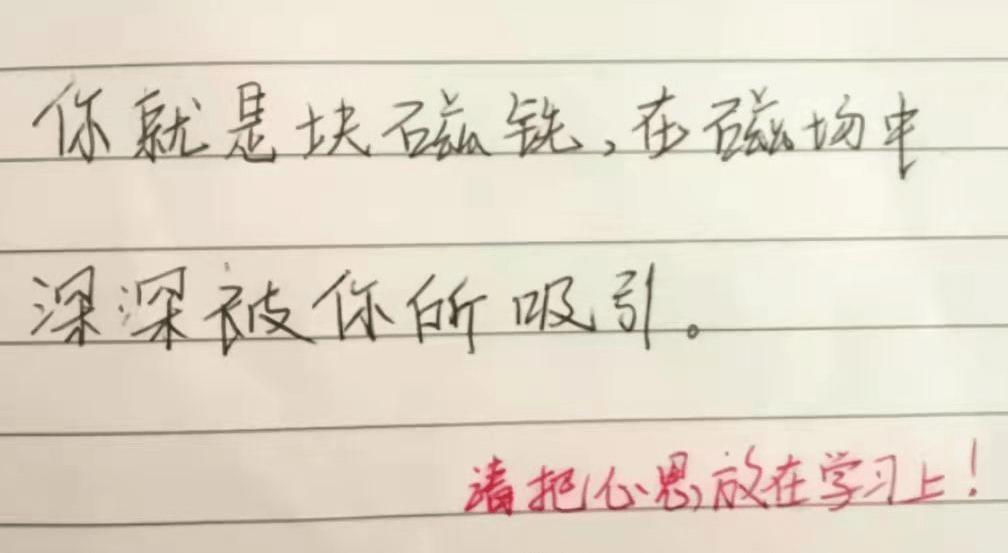 你就是块磁铁,在磁场中
深深被你所吸引。
请把心思放在学习上!